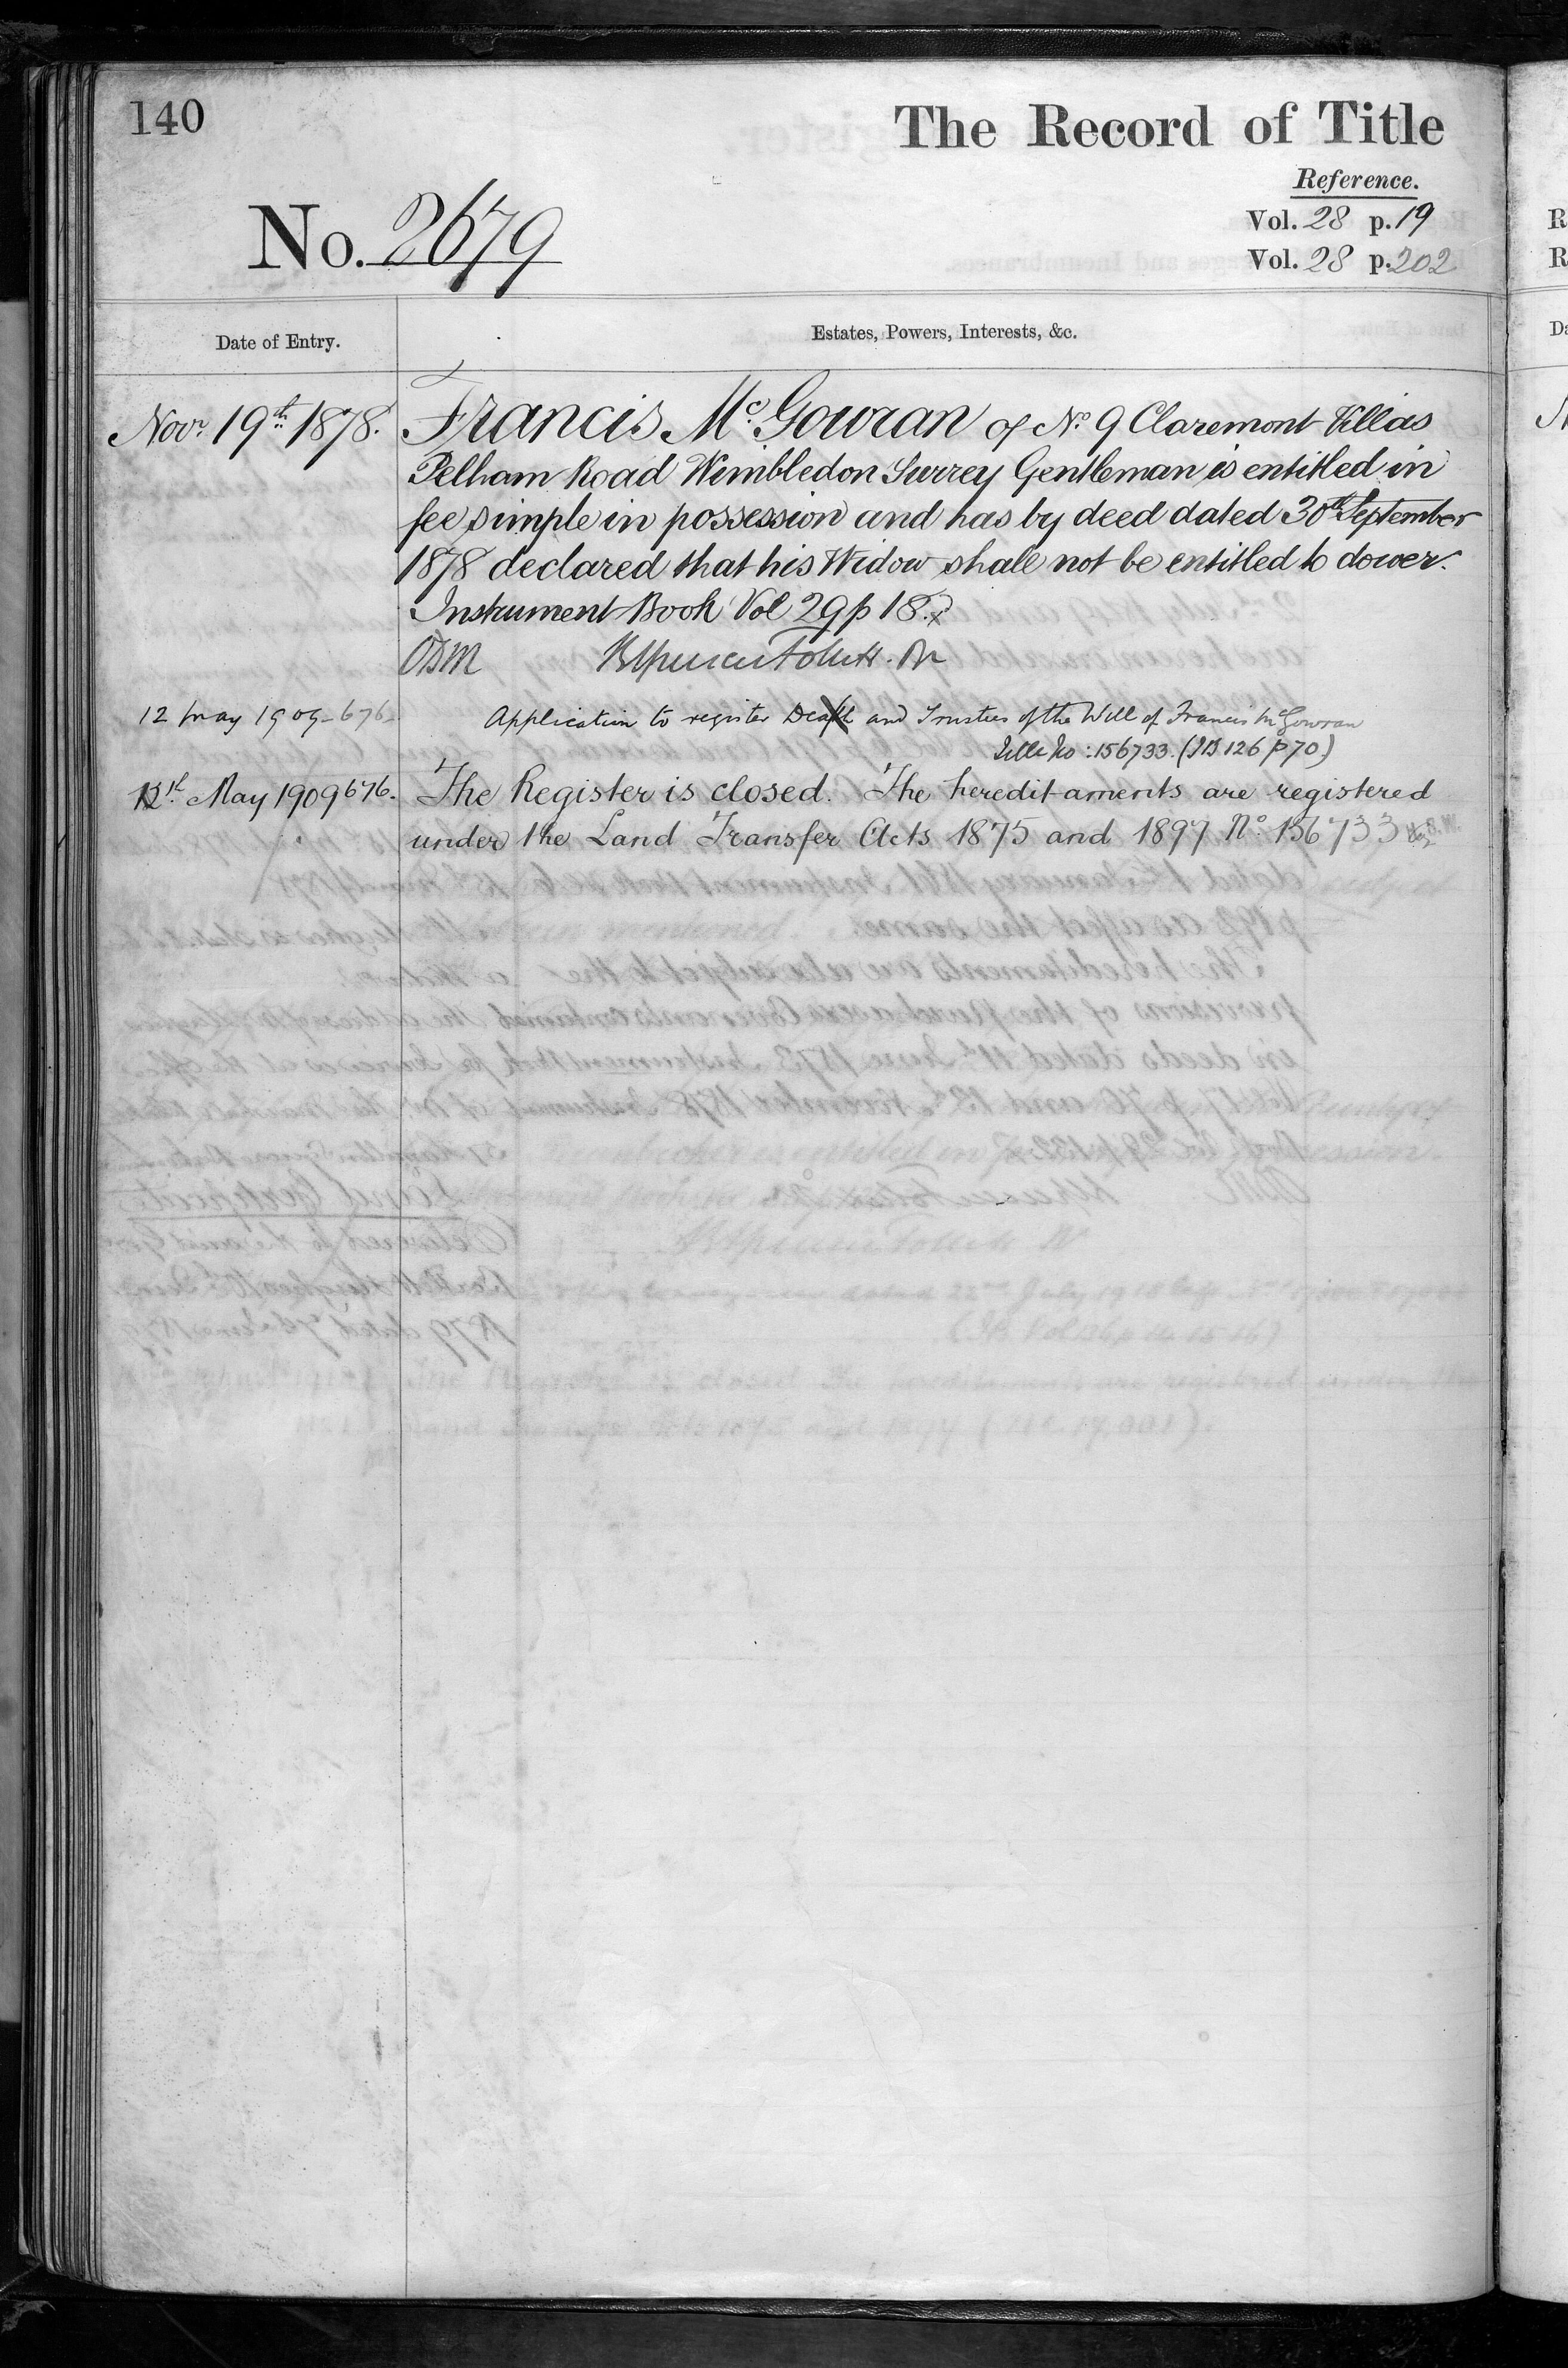 140
The Record of Title
Reference.
No. 2679
Vol. 28 p. 19
Vol. 28 p. 202
Date of Entry.
Estates, Powers, Interests, &c.
Novr. 19th 1878.
Francis McGowran of No. 9 Claremont Villas
Pelham Road Wimbledon Surrey Gentleman is entitled in
fee simple in possession and has by deed dated 30th September
1878 declared that his Widow shall not be entitled to dower.
Instrument Book Vol 29 p 18.
12 May 1909 - 676
Application to register Death and Trustees of the Will of Francis McGowran
Title No: 156733. (IB 126 p 70)
May 1909 676.
The Register is closed. The hereditaments are registered
under the Land Transfer Acts 1875 and 1897 No. 156733